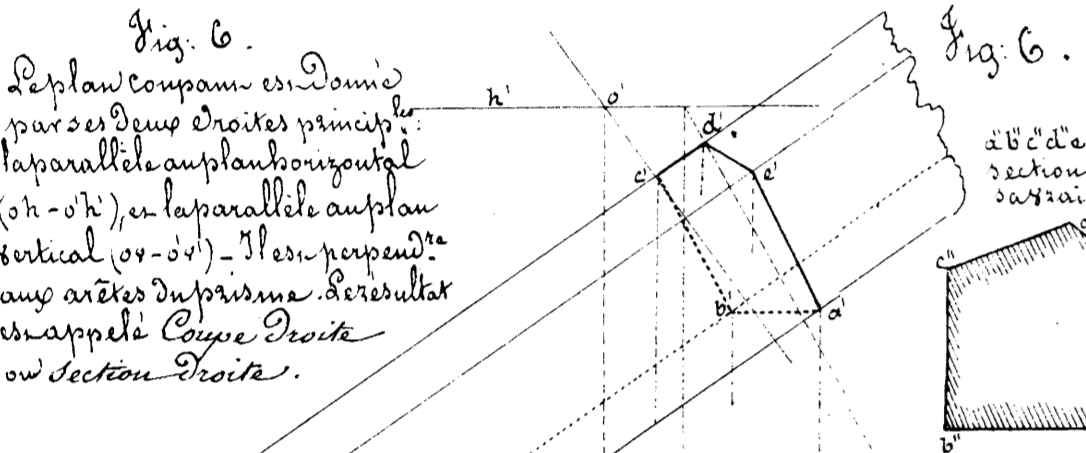 Fig: 6.
Le plan coupant est donné
par ses deux droites princip.les:
la parallèle au plan horizontal
(oh-o'h'), et la parallèle au plan
vertical (ov-o'v') - Il est perpend.re
aux arêtes du prisme. Le résultat
est appelé Coupe Droite
ou Section Droite.
h'
o'
d'
c'
e'
b'
a'
Fig: 6.
a"b"c"d"e
section
sa vrai
c"
b"